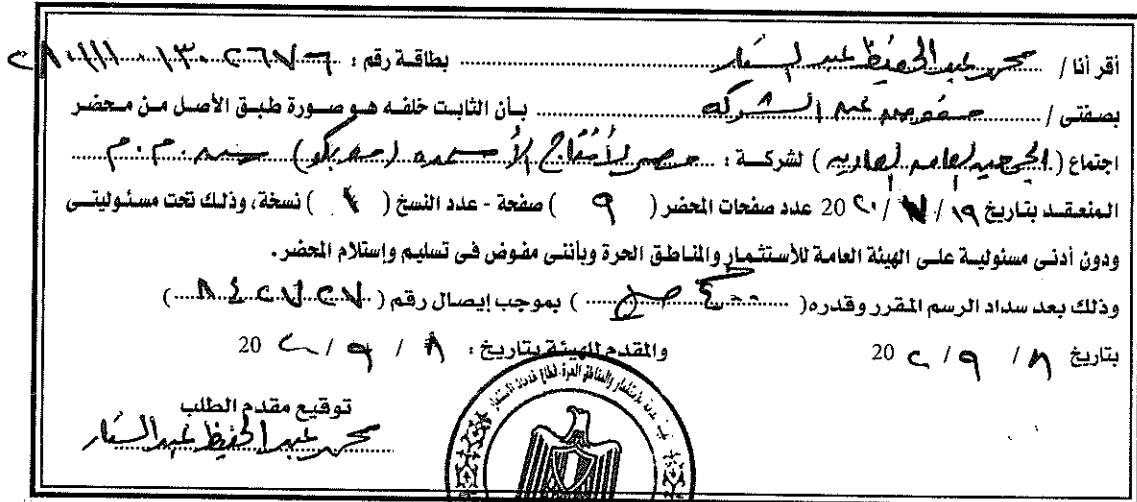 أقر أنا / محمد عبد الحفيظ عبد الستار بطاقة رقم :
بصفتى / مفوض عن الشركة بأن الثابت خلفه هو صورة طبق الأصل من محضر
اجتماع ( الجمعية العامة العادية ) لشركة : مصر لأنتاج الأسمدة (موبكو) ش.م.م
المنعقد بتاريخ ١٩ / / ٢٠ 20 عدد صفحات المحضر ( ٩ ) صفحة - عدد النسخ ( ) نسخة، وذلك تحت مسئوليتى
ودون أدنى مسئولية على الهيئة العامة للأستثمار والمناطق الحرة وبأننى مفوض فى تسليم وإستلام المحضر.
وذلك بعد سداد الرسم المقرر وقدره ( ) بموجب إيصال رقم ( )
بتاريخ ٨ / ٩ / ٢٠ 20 والمقدم للهيئة بتاريخ : ٨ / ٩ / ٢٠ 20
توقيع مقدم الطلب
محمد عبد الحفيظ عبد الستار